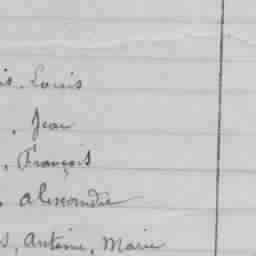 is, Louis
, Jean
, François
, Alexandre
s, Antoine, Marie